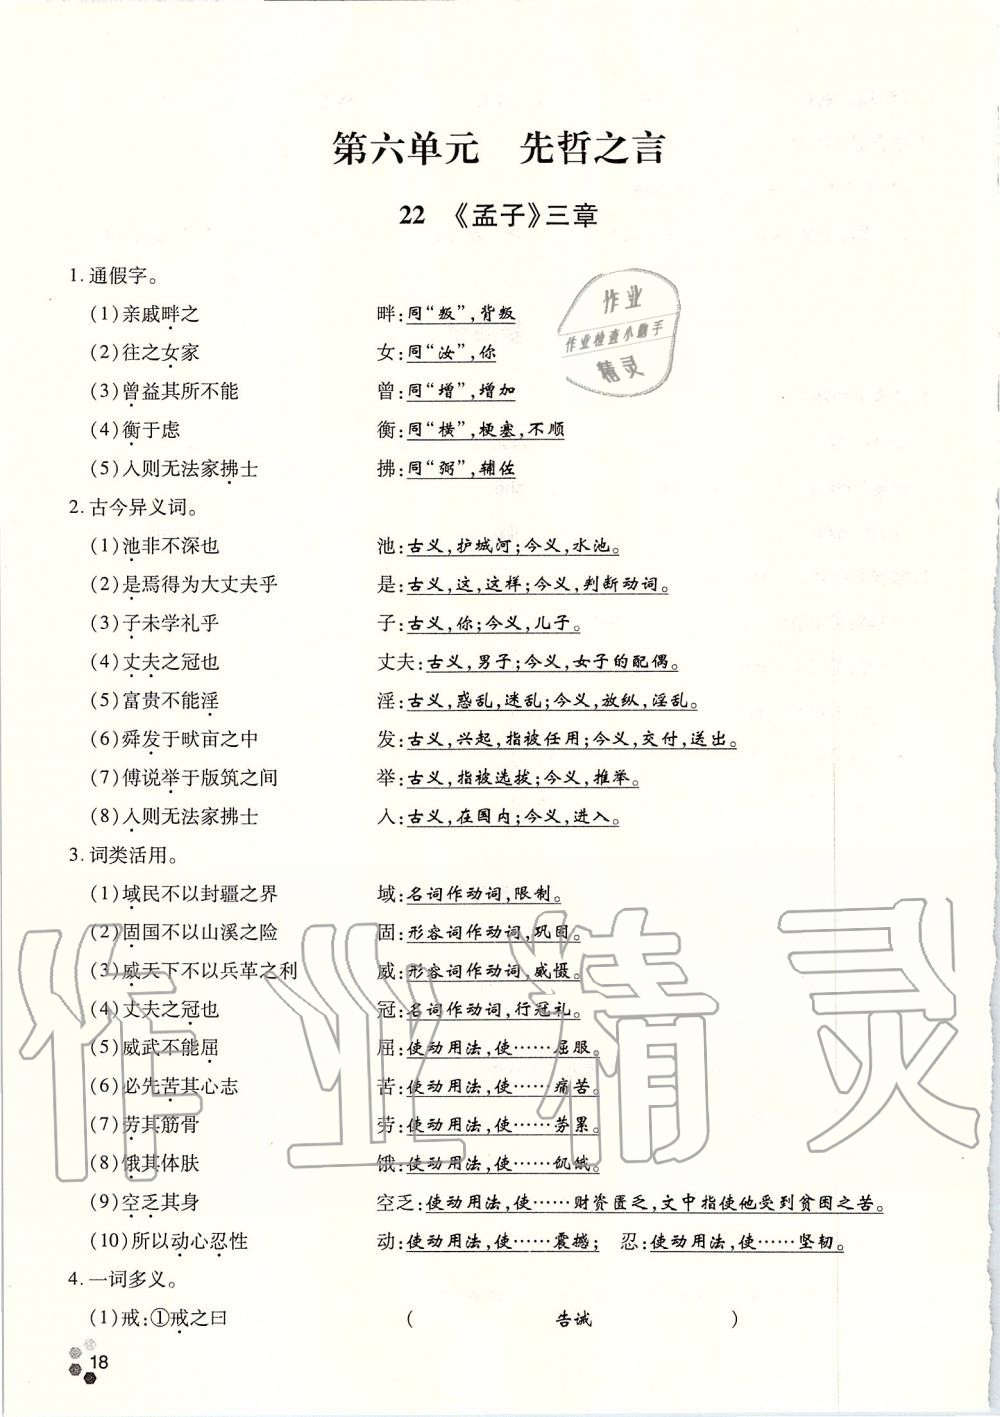 第六单元 先哲之言
22 《孟子》三章
1. 通假字。
(1)亲戚畔之 畔:同“叛”,背叛
(2)往之女家 女:同“汝”,你
(3)曾益其所不能 曾:同“增”,增加
(4)衡于虑 衡:同“横”,梗塞,不顺
(5)入则无法家拂士 拂:同“弼”,辅佐
2. 古今异义词。
(1)池非不深也 池:古义,护城河;今义,水池。
(2)是焉得为大丈夫乎 是:古义,这,这样;今义,判断动词。
(3)子未学礼乎 子:古义,你;今义,儿子。
(4)丈夫之冠也 丈夫:古义,男子;今义,女子的配偶。
(5)富贵不能淫 淫:古义,惑乱,迷乱;今义,放纵,淫乱。
(6)舜发于畎亩之中 发:古义,兴起,指被任用;今义,交付,送出。
(7)傅说举于版筑之间 举:古义,指被选拔;今义,推举。
(8)入则无法家拂士 入:古义,在国内;今义,进入。
3. 词类活用。
(1)域民不以封疆之界 域:名词作动词,限制。
(2)固国不以山溪之险 固:形容词作动词,巩固。
(3)威天下不以兵革之利 威:形容词作动词,威慑。
(4)丈夫之冠也 冠:名词作动词,行冠礼。
(5)威武不能屈 屈:使动用法,使……屈服。
(6)必先苦其心志 苦:使动用法,使……痛苦。
(7)劳其筋骨 劳:使动用法,使……劳累。
(8)饿其体肤 饿:使动用法,使……饥饿。
(9)空乏其身 空乏:使动用法,使……财资匮乏,文中指使他受到贫困之苦。
(10)所以动心忍性 动:使动用法,使……震撼; 忍:使动用法,使……坚韧。
4. 一词多义。
(1)戒:①戒之曰 ( 告诫 )
18
作业
作业检查小助手
精灵
作业精灵